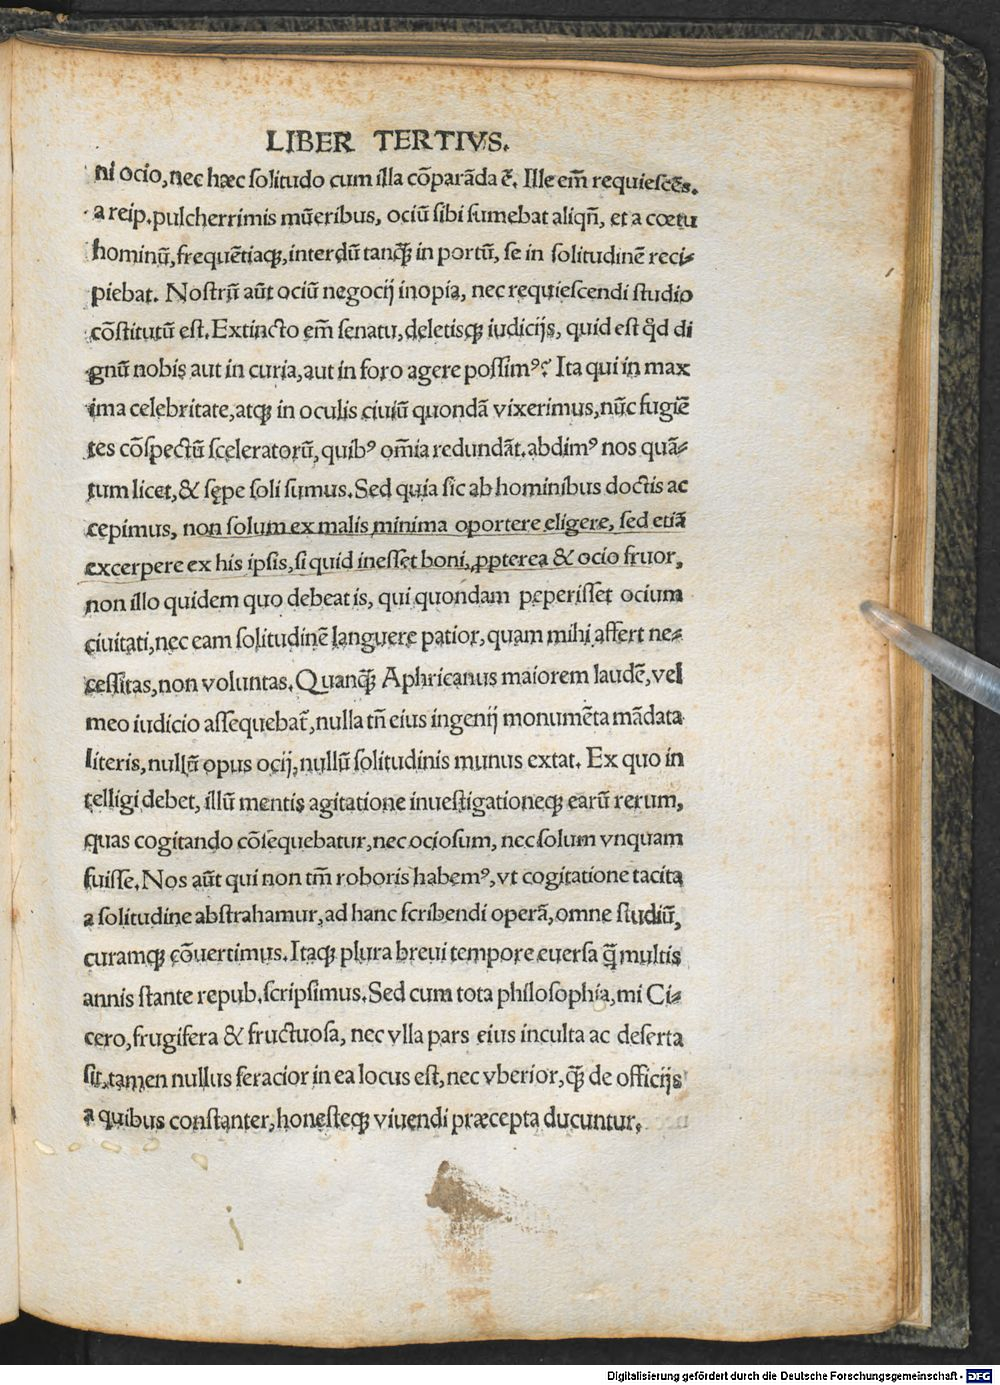 LIBER TERTIVS.
ni ocio, nec hæc solitudo cum illa cōparāda ē. Ille em̄ requiescēs.
a reip. pulcherrimis mūeribus, ociū sibi sumebat aliqñ, et a cœtu
hominū, frequētiaqꝫ, interdū tanqꝫ̄ in portū, se in solitudinē reci⸗
piebat. Nostrū aūt ociū negocij inopia, nec requiescendi studio
cōstitutū est. Extincto em̄ senatu, deletisqꝫ iudicijs, quid est qd̛ di
gnū nobis aut in curia, aut in foro agere possimꝰ? Ita qui in max
ima celebritate, atqꝫ in oculis ciuiū quondā vixerimus, nūc fugiē
tes cōspectū sceleratorū, quibꝰ om̄ia redundāt. abdimꝰ nos quā⸗
tum licet, & sępe soli sumus. Sed quia sic ab hominibus doctis ac
cepimus, non solum ex malis minima oportere eligere, sed etiā
excerpere ex his ipsis, si quid inesset boni, ꝓpterea & ocio fruor,
non illo quidem quo debeat is, qui quondam peperisset ocium
ciuitati, nec eam solitudinē languere patior, quam mihi affert ne⸗
cessitas, non voluntas. Quanqꝫ̄ Aphricanus maiorem laudē, vel
meo iudicio assequebat̄, nulla tn̄ eius ingenij monumēta mādata
literis, nullū opus ocij, nullū solitudinis munus extat. Ex quo in
telligi debet, illū mentis agitatione inuestigationeqꝫ earū rerum,
quas cogitando cōsequebatur, nec ociosum, nec solum vnquam
fuisse. Nos aūt qui non tm̄ roboris habemꝰ, vt cogitatione tacita
a solitudine abstrahamur, ad hanc scribendi operā, omne studiū,
curamqꝫ cōuertimus. Itaqꝫ plura breui tempore euersa qꝫ̄ multis
annis stante repub. scripsimus. Sed cum tota philosophia, mi Ci⸗
cero, frugifera & fructuosa, nec vlla pars eius inculta ac deserta
sit, tamen nullus feracior in ea locus est, nec vberior, qꝫ̄ de officijs
a quibus constanter, honesteqꝫ viuendi præcepta ducuntur,
Digitalisierung gefördert durch die Deutsche Forschungsgemeinschaft - DFG